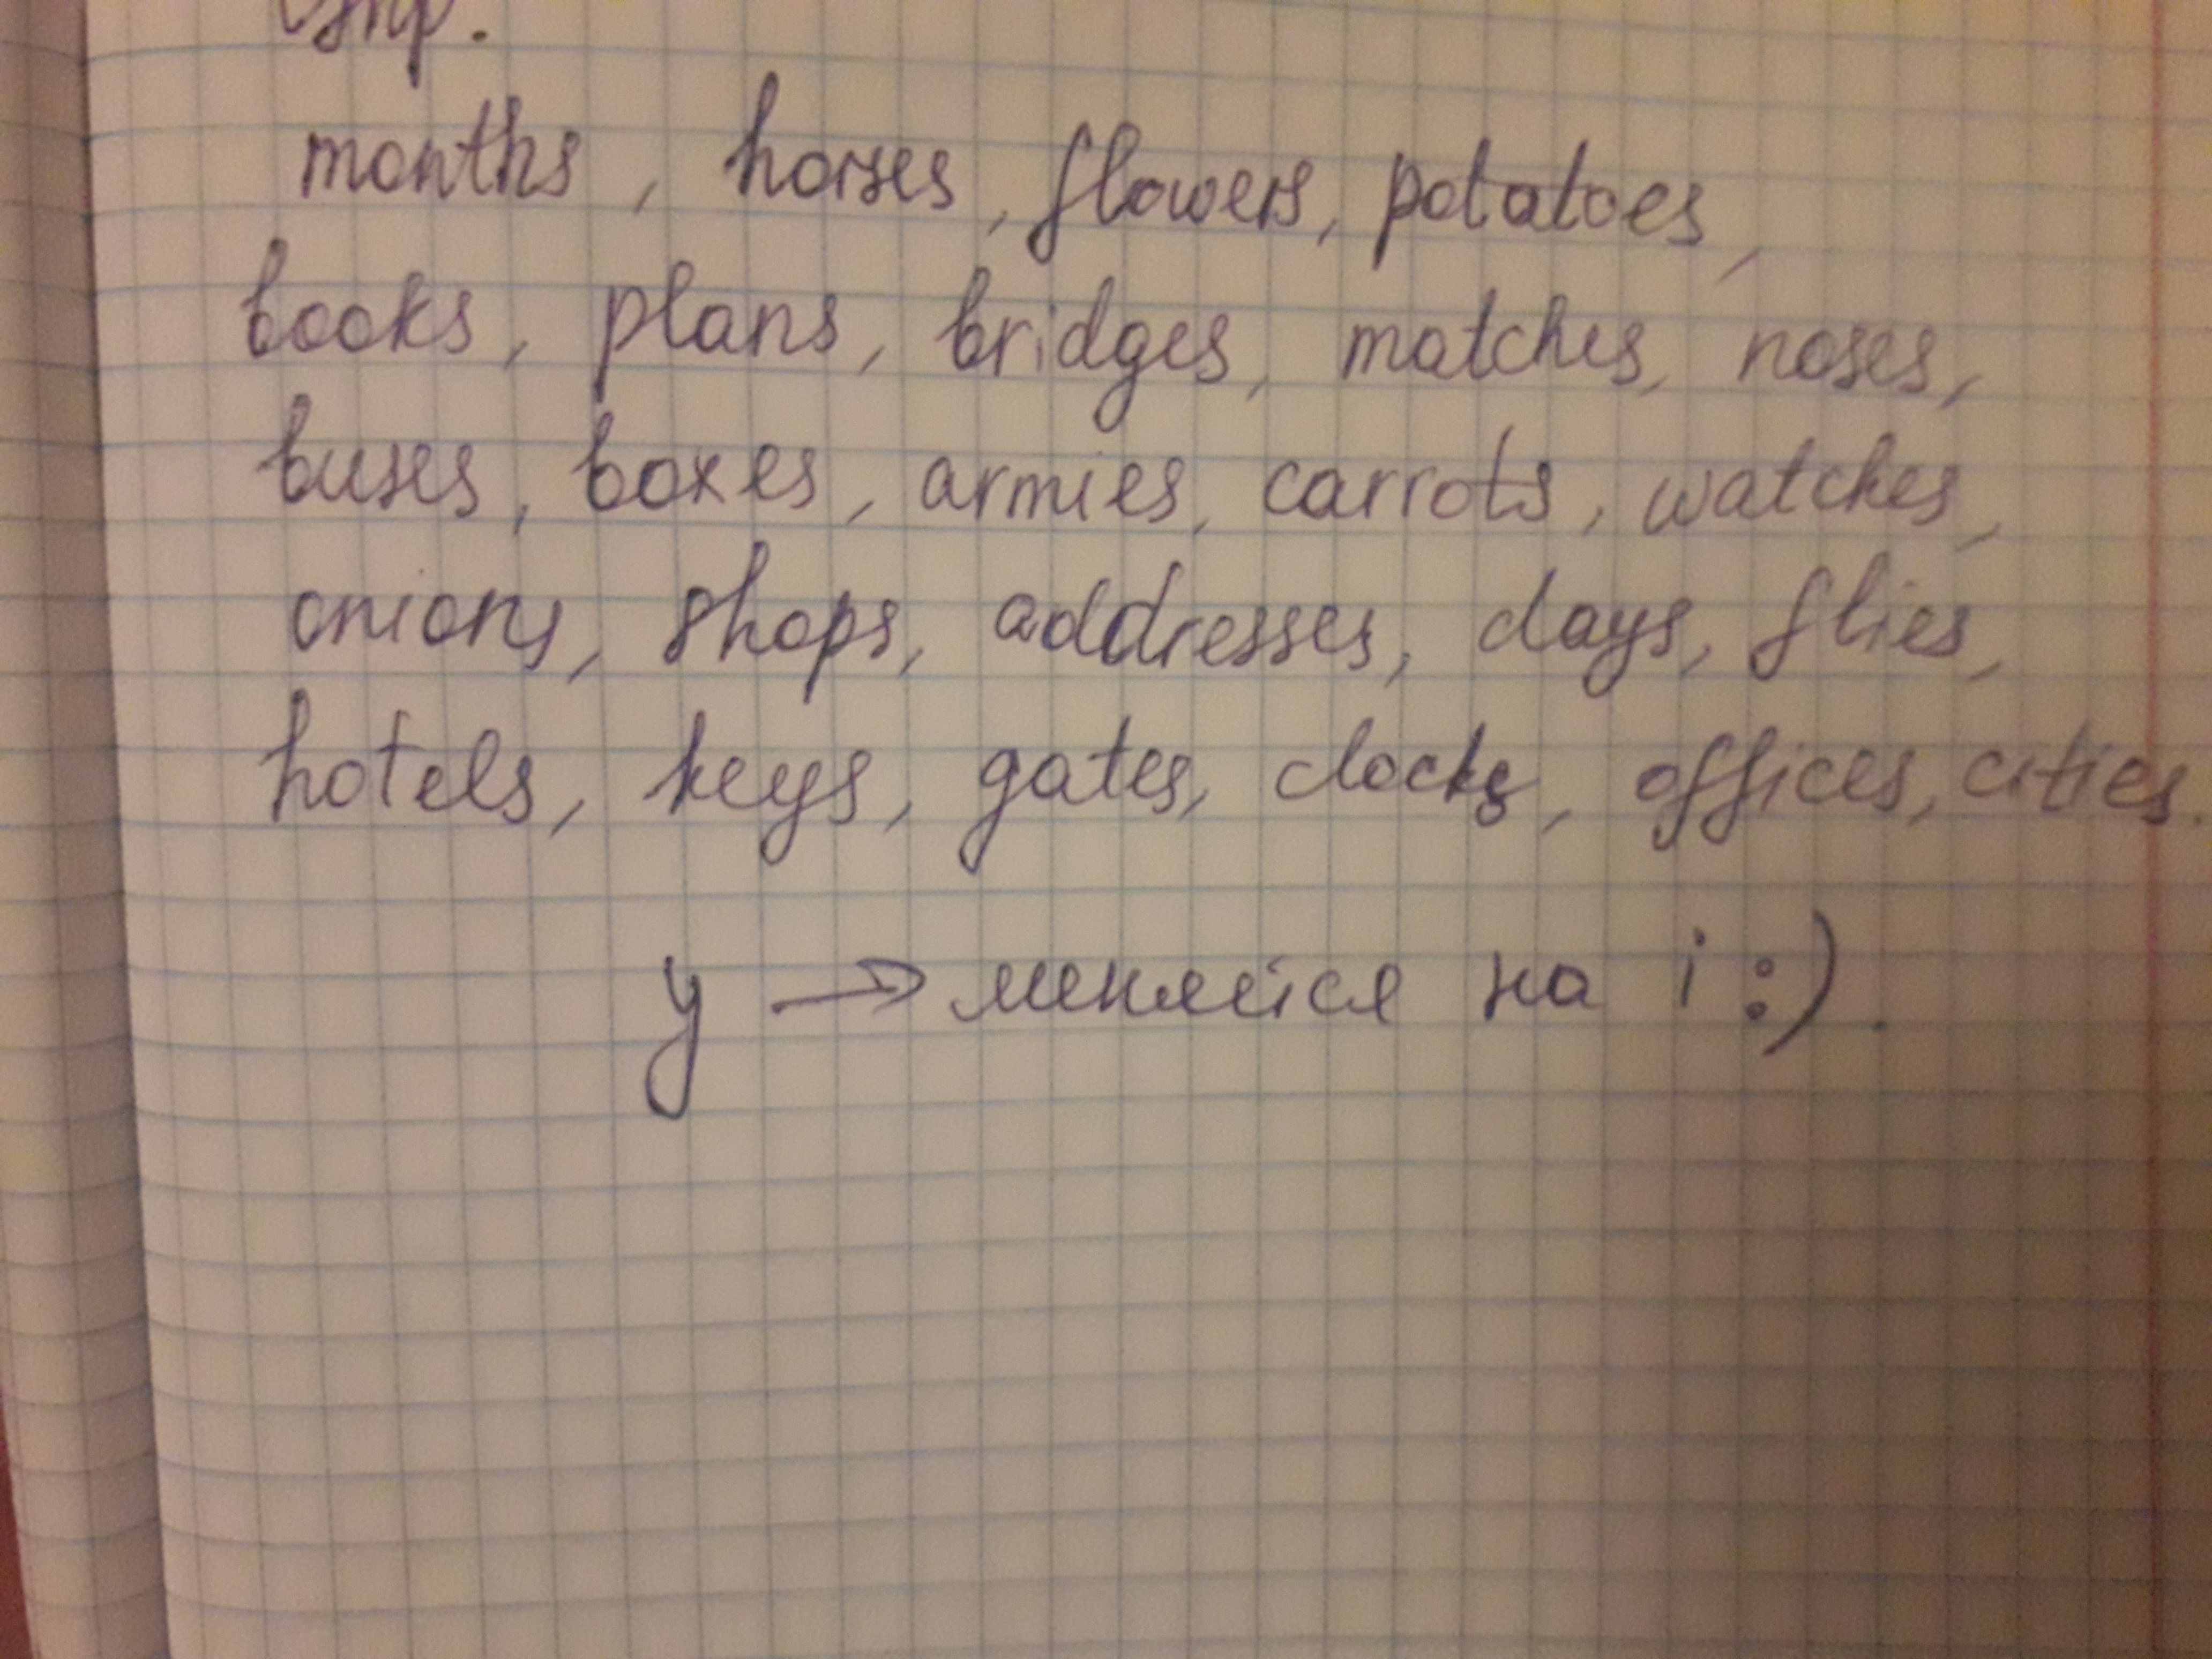 months, horses, flowers, potatoes,
books, plans, bridges, matches, noses,
buses, boxes, armies, carrots, watches,
onions, shops, addresses, days, flies,
hotels, keys, gates, clocks, offices, cities.
y → меняйся на i :).